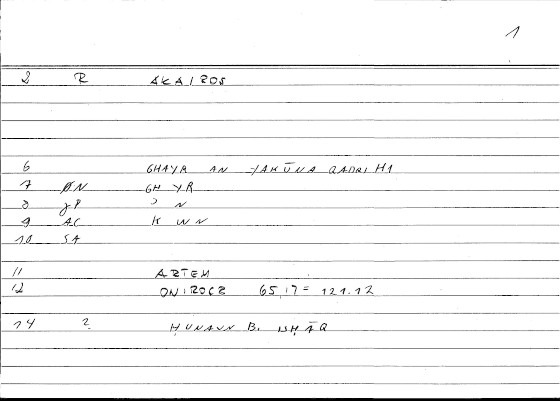 1
2 R AKAIROS
6 GHAYR AN YAKŪNA QADRIH1
7 ØN GH YR
8 JP ᵓ N
9 AC K WN
10 SA
11 ARTEM
12 ONIROCR 65,17 = 121.12
14 2 ḤUNAYN B. ISḤĀQ